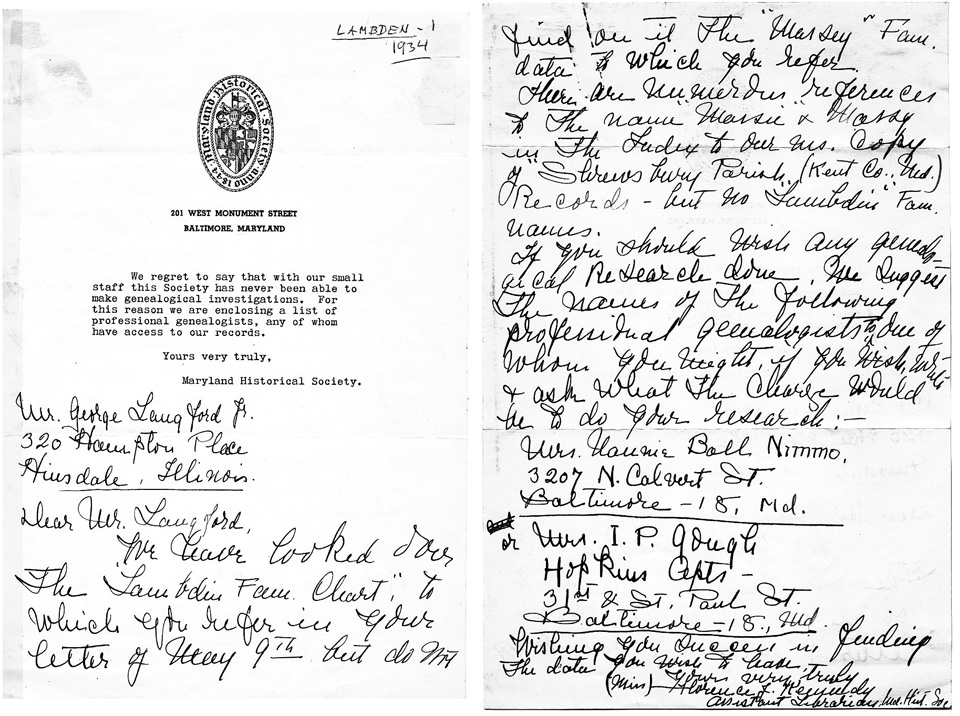 LAMBDEN - 1
1934
Maryland Historical Society. anno 1844
201 WEST MONUMENT STREET
BALTIMORE, MARYLAND
We regret to say that with our small
staff this Society has never been able to
make genealogical investigations. For
this reason we are enclosing a list of
professional genealogists, any of whom
have access to our records.
Yours very truly,
Maryland Historical Society.
Mr. George Langford Jr.
320 Hampton Place
Hinsdale, Illinois.
Dear Mr. Langford,
We have looked over
The "Lambdin Fam. Chart", to
which you refer in your
letter of May 9th but do not
find on it The "Massey" Fam.
data to which you refer.
There are numerous references
to The name "Massie" & "Massy"
in The Index to our ms. Copy
of "Shrewsbury Parish, (Kent Co., Md.)
Records - but no "Lambdin" Fam.
names.
If you should wish any geneal-
gical Research done, we suggest
The names of The following
professional genealogists, to one of
whom you might, if you wish, write
& ask what The Charge would
be to do your research:-
Mrs. Nannie Ball Nimmo,
3207 N. Calvert St.
Baltimore - 18, Md.
or Mrs. I. P. Gough
Hopkins Apts -
31st & St. Paul St.
Baltimore - 18, Md.
Wishing you success in finding
The data you wish to have,
Yours very truly
(Miss) Florence J. Kennedy
Assistant Librarian, Md. Hist. Soc.